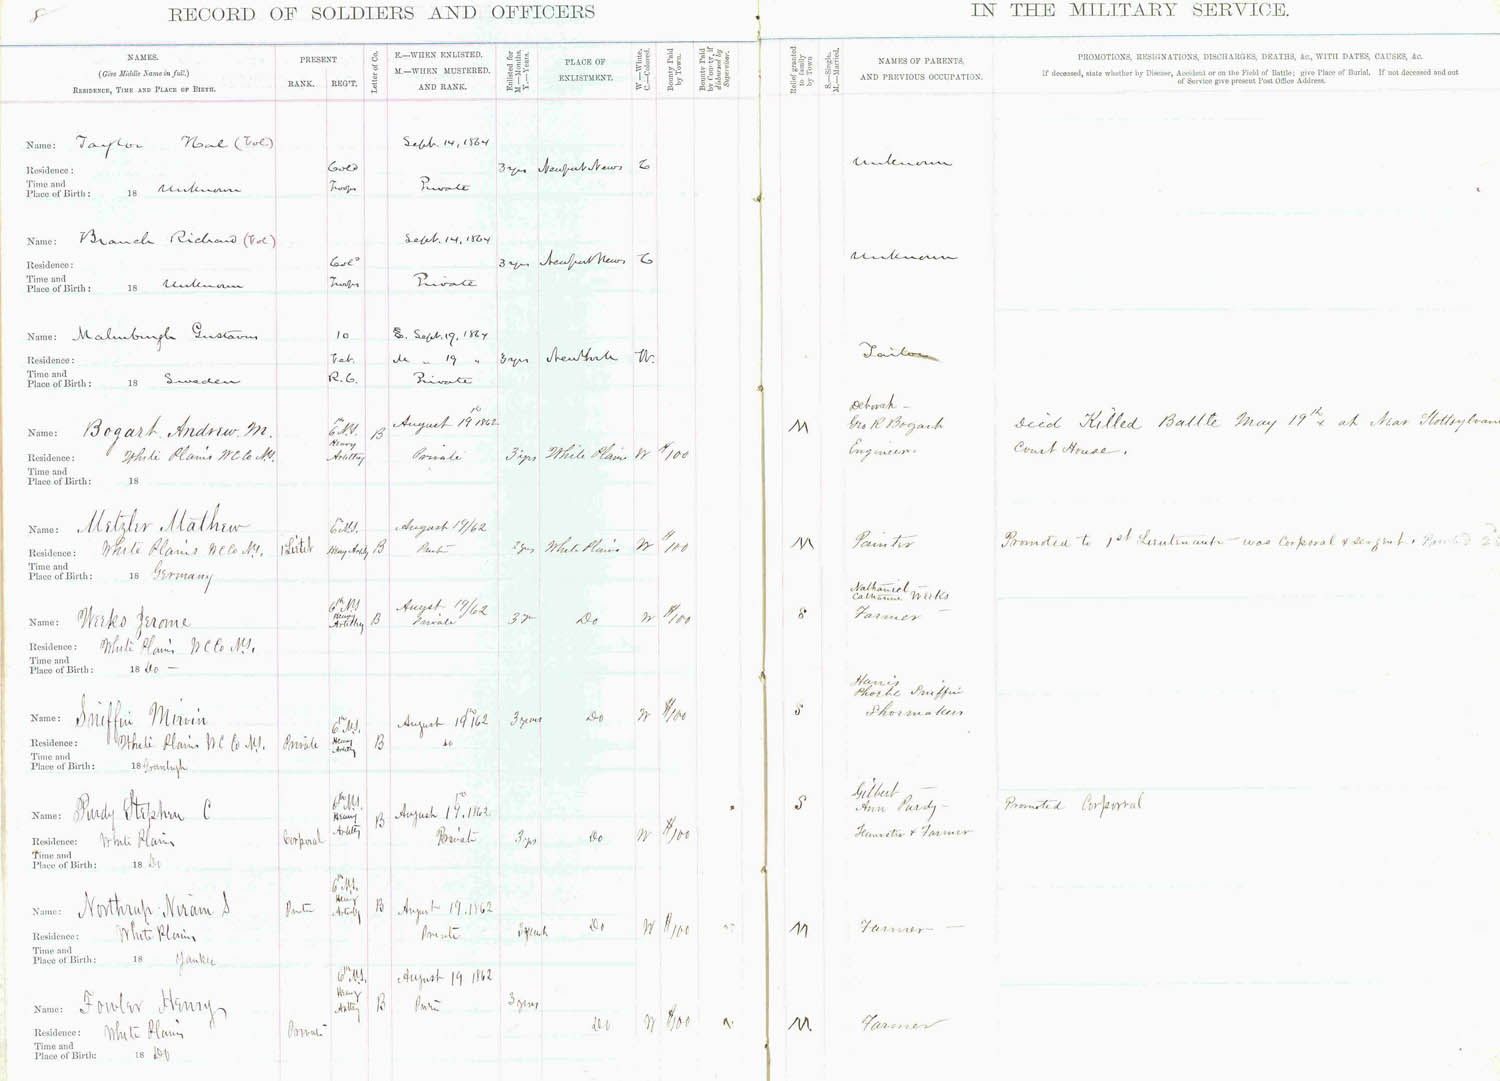 8
RECORD OF SOLDIERS AND OFFICERS
IN THE MILITARY SERVICE.
NAMES.
(Give Middle Name in full.)
RESIDENCE, TIME AND PLACE OF BIRTH.
PRESENT
RANK.
REG'T.
Letter of Co.
E.—WHEN ENLISTED.
M.—WHEN MUSTERED.
AND RANK.
Enlisted for
M—Months.
Y.—Years.
PLACE OF
ENLISTMENT.
W.—White.
C.—Colored.
Bounty Paid
by Town.
Bounty Paid
by County, if
disbursed by
Supervisor.
Relief granted
to family
by Town
S.—Single.
M.—Married.
NAMES OF PARENTS,
AND PREVIOUS OCCUPATION.
PROMOTIONS, RESIGNATIONS, DISCHARGES, DEATHS, &c., WITH DATES, CAUSES, &c.
If deceased, state whether by Disease, Accident or on the Field of Battle; give Place of Burial. If not deceased and out
of Service give present Post Office Address.
Name: Taylor (Vol) Sept. 14, 1864
Residence: Col'd 3 yrs Newport News C Unknown
Time and
Place of Birth: 18 Unknown Troops Private
Name: Branch Richard (Vol) Sept. 14, 1864
Residence: Col'd 3 yrs Newport News C Unknown
Time and
Place of Birth: 18 Unknown Troops Private
Name: Malmburgh Gustavus 10 E. Sept. 19, 1864
Residence: Vet. M " 19 " 3 yrs New York W. Tailor
Time and
Place of Birth: 18 Sweden R.C. Private
Deborah –
Name: Bogart Andrew M. 6th N.Y. Heavy Artillery B August 19th 1862 M Geo R Bogart Died Killed Battle May 19th at Near
Residence: White Plains W C Co N.Y. Private 3 yrs White Plains W $100 Engineer. Court House.
Time and
Place of Birth: 18
Name: Metzler Mathew 6 N.Y. August 19/62
Residence: White Plains W C Co N.Y. B White Plains W $100 M Painter Promoted to 1st Lieutenant – was Corporal & sergent.
Time and
Place of Birth: 18 Germany
Nathaniel
Catharine Weeks
Name: Weeks Jerome 6th N.Y. Heavy Artillery B August 19/62 Private 3 Do W $100 S Farmer –
Residence: White Plains W C Co N.Y.
Time and
Place of Birth: 18 Do –
Phoebe Sniffin
Name: Sniffin Mirvin 6th N.Y. August 19th 1862 3 years Do W $100 S Shoemaker
Residence: White Plains W C Co N.Y. Private Heavy Artillery B do
Time and
Place of Birth: 18
Gilbert –
Name: Purdy Stephen C 6th N.Y. Heavy Artillery B August 19, 1862 S Ann Purdy – Promoted Corporal
Residence: White Plains Corporal Private 3 yrs Do W $100 Teamster & Farmer
Time and
Place of Birth: 18 Do
Name: Northrup Niram S 6th N.Y. Heavy Artillery B August 19, 1862
Residence: White Plains Private Do W $100 M Farmer –
Time and
Place of Birth: 18 Yankee
Name: Fowler Henry 6th N.Y. Heavy B August 19 1862 3 years
Residence: White Plains Private Do W $100 M Farmer
Time and
Place of Birth: 18 Do